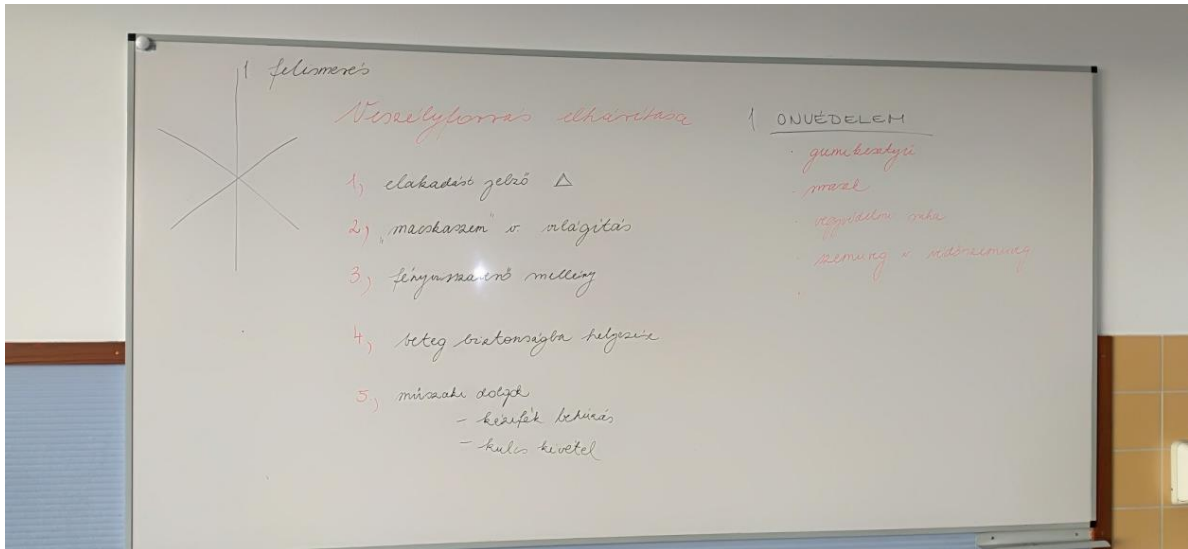 1 felismerés
Veszélyforrás elhárítása
1, elakadást jelző △
2, „macskaszem" v. világítás
3, fényvisszaverő mellény
4, beteg biztonságba helyezése
5, műszaki dolgok
- kézifék behúzás
- kulcs kivétel
1 ÖNVÉDELEM
· gumikesztyű
· maszk
· végvédelmi ruha
· szemüveg v. védőszemüveg
·